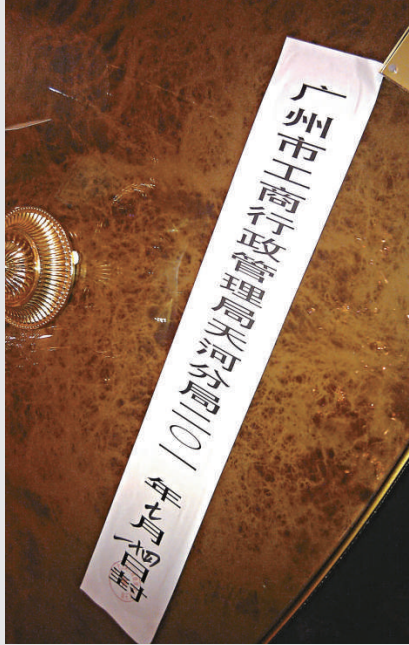 广州市工商行政管理局天河分局二〇一 年七月十四日封